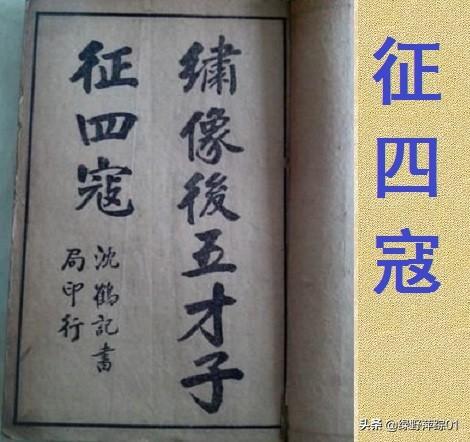 繡像後五才子
征四寇
沈鶴記書
局印行
征四寇
头条 @绿野萍踪01